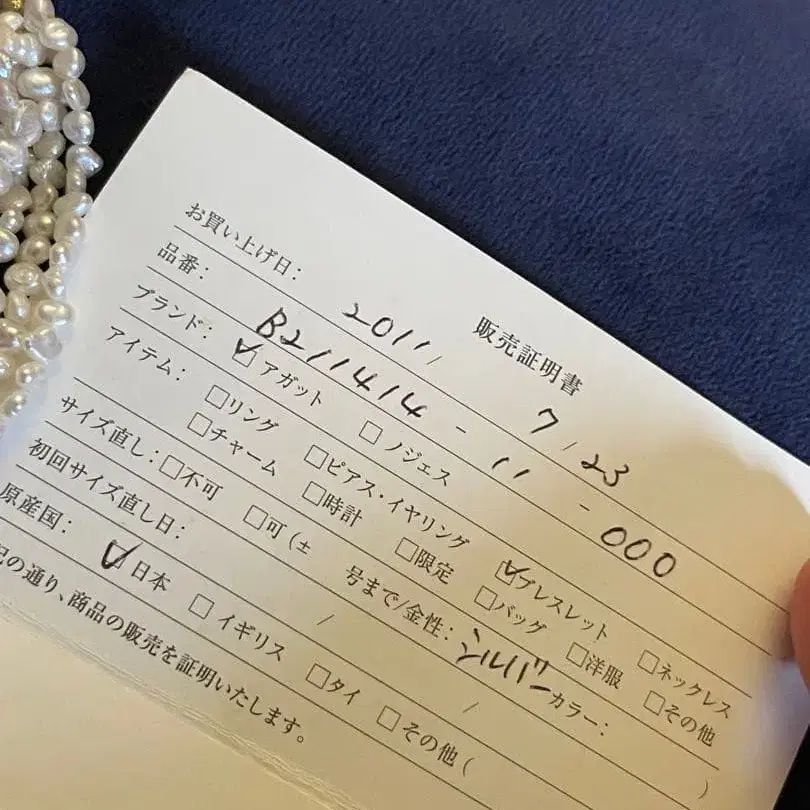 販売証明書
お買い上げ日: 2011 / 7 / 23
品番: B211414 - 11 - 000
ブランド: ☑アガット □ノジェス
アイテム: □リング □ピアス・イヤリング ☑ブレスレット □ネックレス
□チャーム □時計 □限定 □バッグ □洋服 □その他
サイズ直し: □不可 □可 (± 号まで/金性: シルバー カラー: )
初回サイズ直し日: / /
原産国: ☑日本 □イギリス □タイ □その他 (
記の通り、商品の販売を証明いたします。